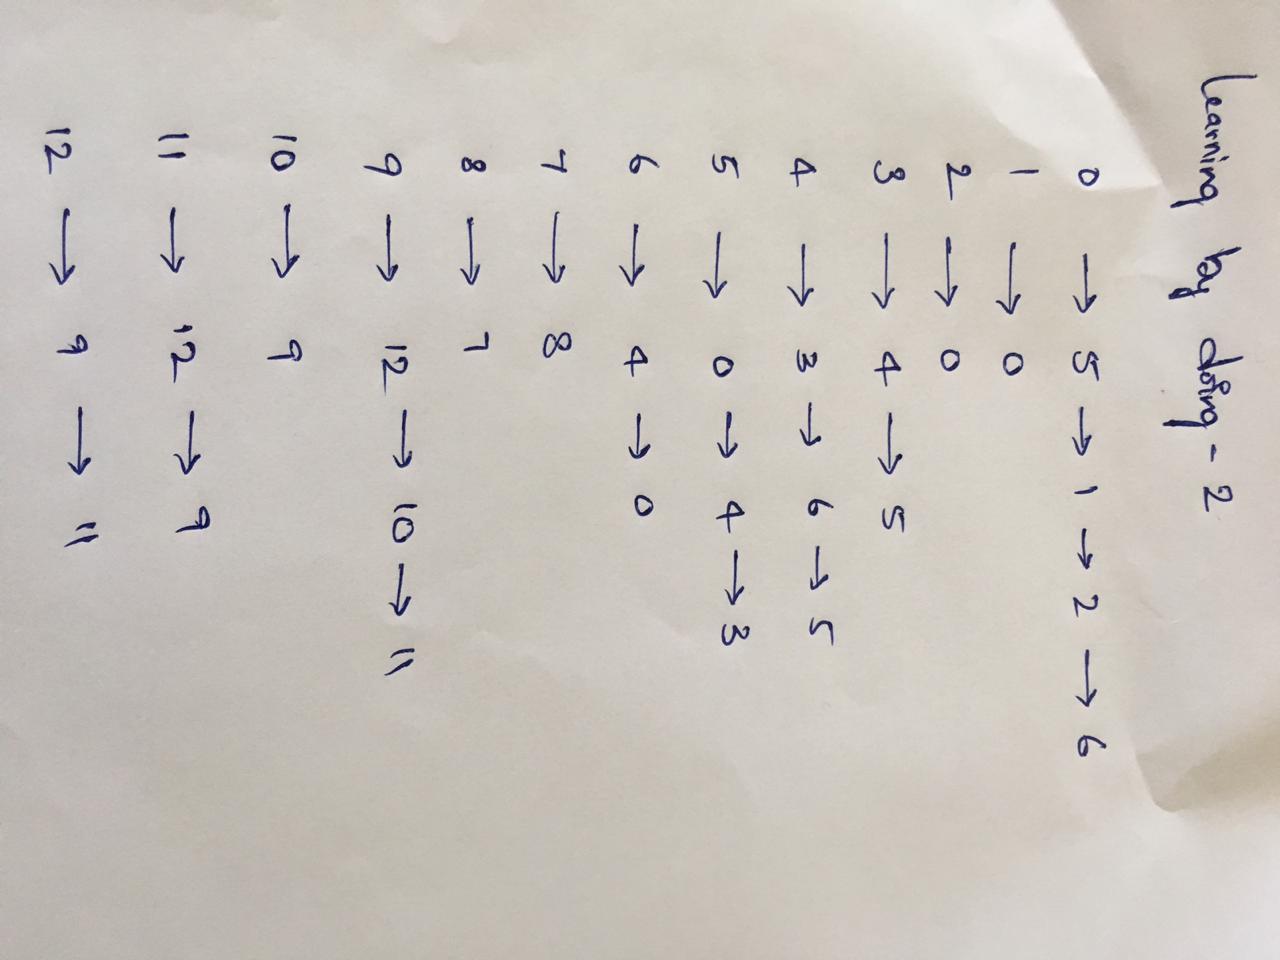 Learning by doing - 2
0 → 5 → 1 → 2 → 6
1 → 0
2 → 0
3 → 4 → 5
4 → 3 → 6 → 5
5 → 0 → 4 → 3
6 → 4 → 0
7 → 8
8 → 7
9 → 12 → 10 → 11
10 → 9
11 → 12 → 9
12 → 9 → 11